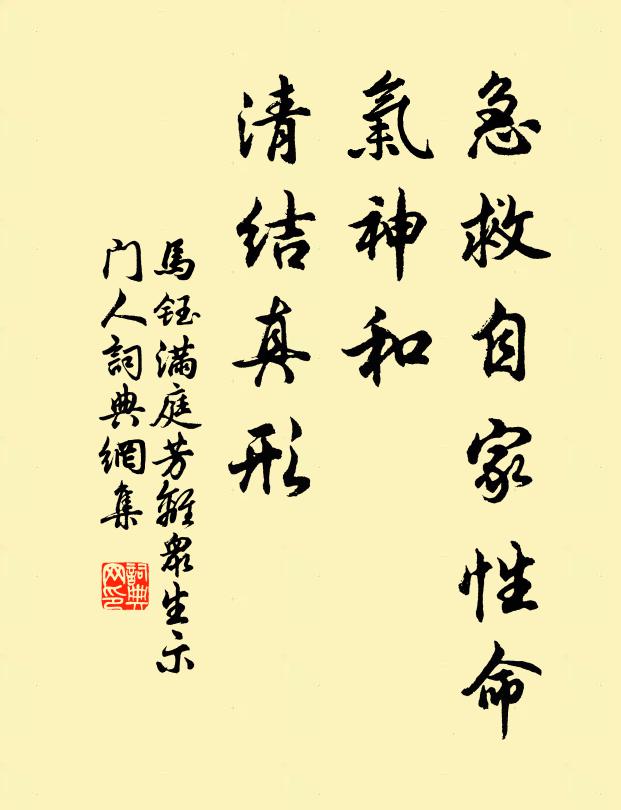 急救自家性命
氣神和
清结真形
馬鈺满庭芳難眾生示
门人詞典網集
詞典
网印